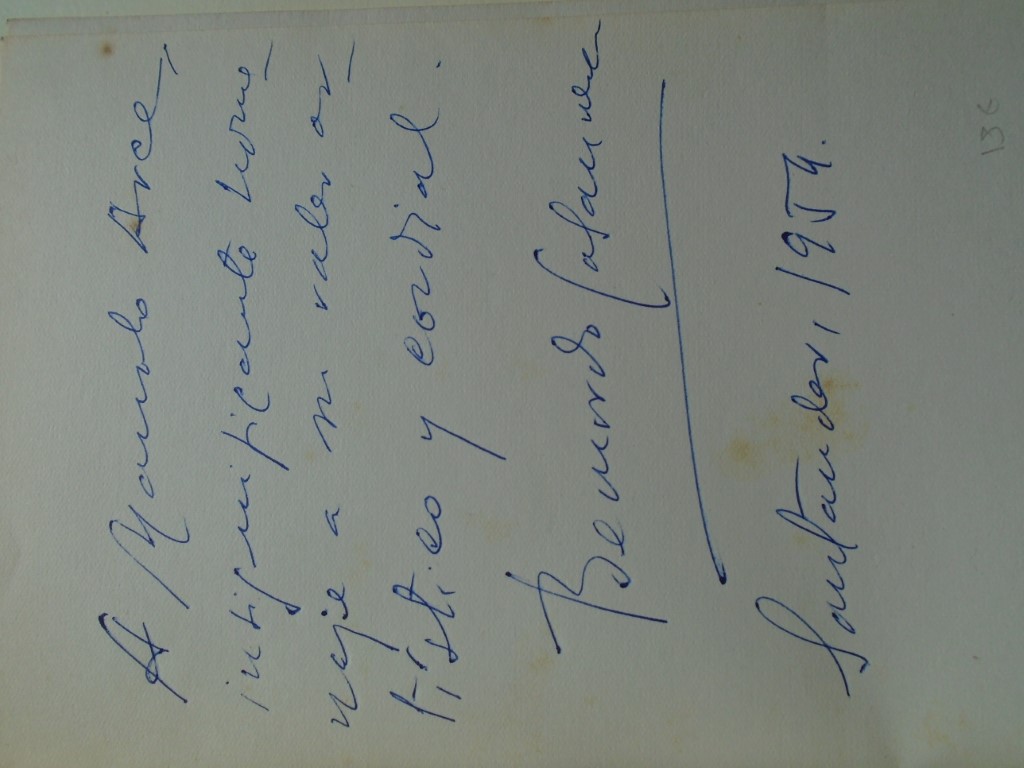 A Manolo Arce,
insignificante home-
naje a su valer ar-
tístico y cordial.
Bernardo Casanueva
Santander, 1954.
136